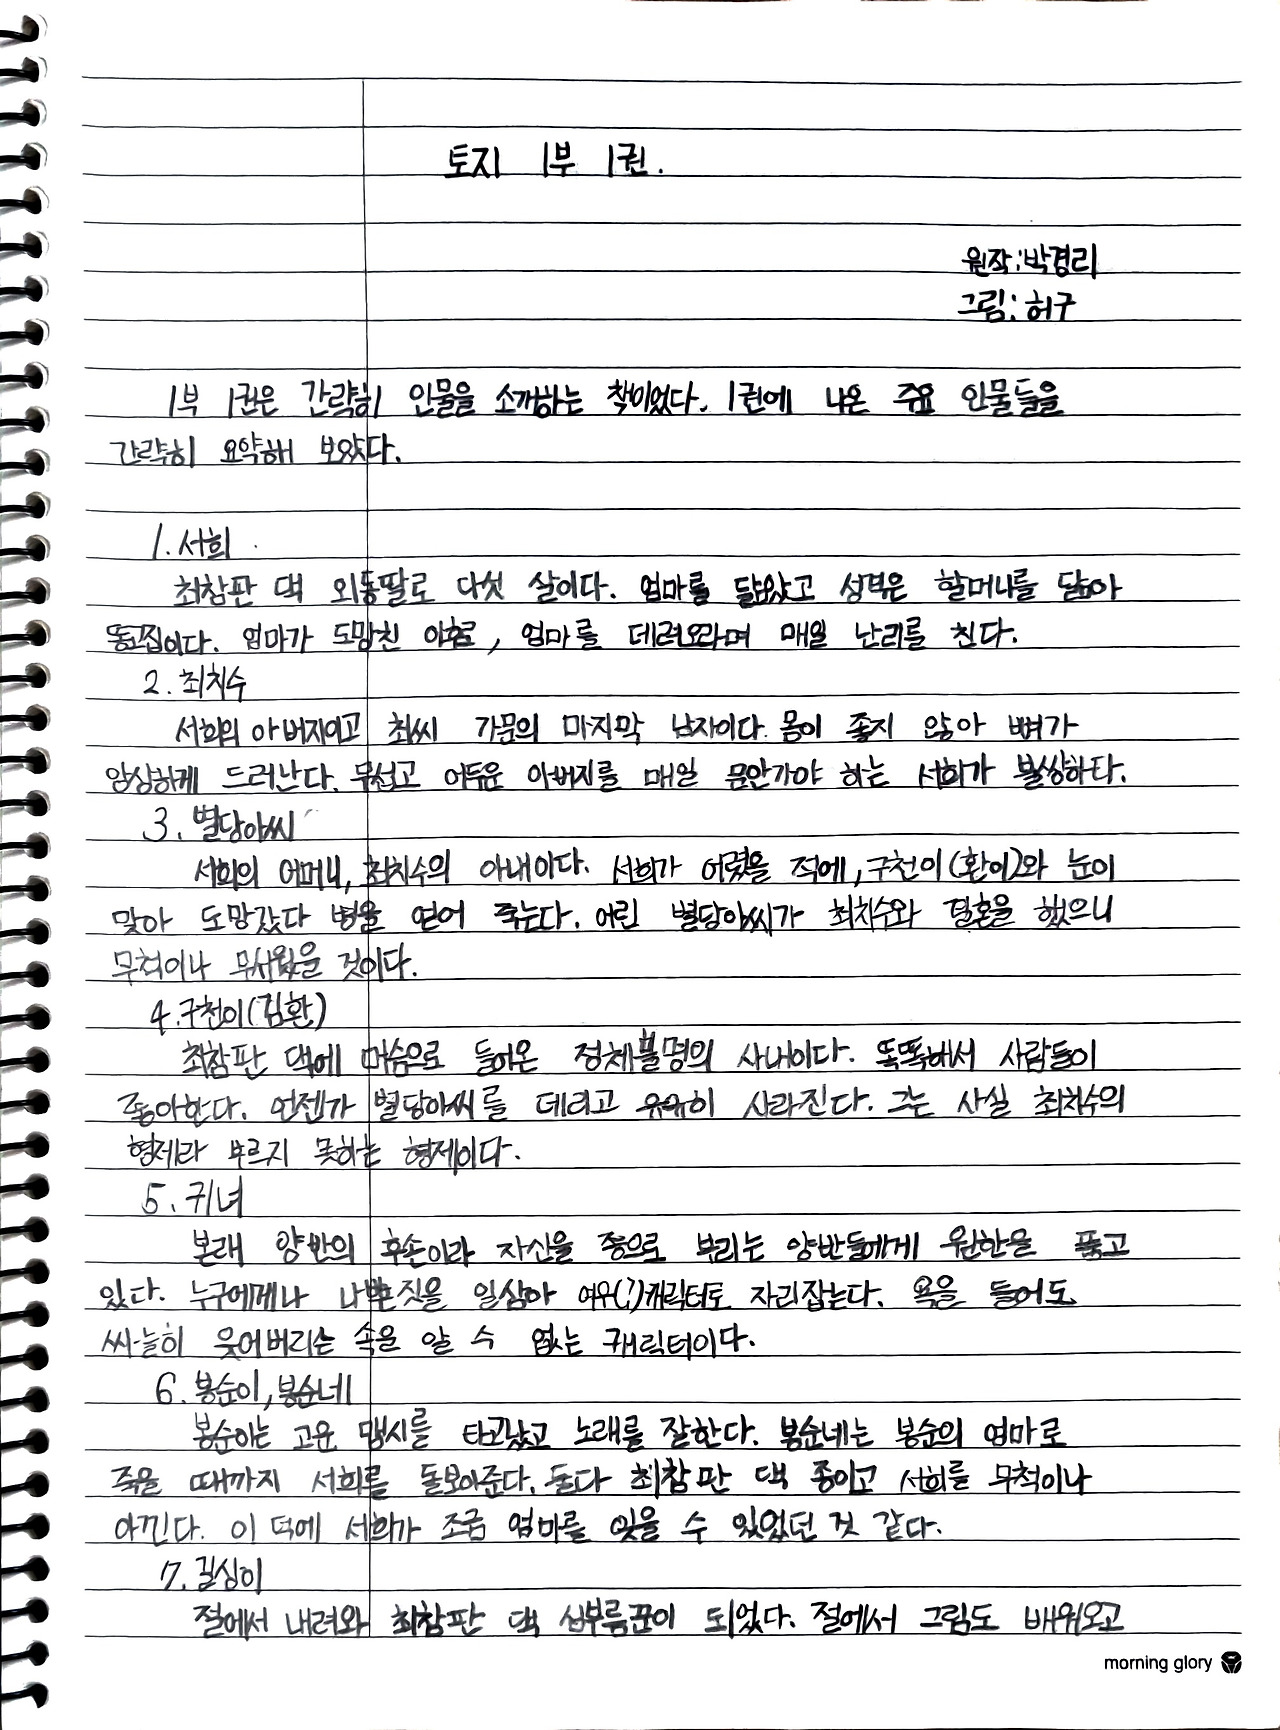 토지 1부 1권.
원작:박경리
그림:허구
1부 1권은 간략히 인물을 소개하는 책이었다. 1권에 나온 주요 인물들을
간략히 요약해 보았다.
1. 서희
최참판 댁 외동딸로 다섯 살이다. 엄마를 닮았고 성격은 할머니를 닮아
똥고집이다. 엄마가 도망친 이후로, 엄마를 데려오라며 매일 난리를 친다.
2. 최치수
서희의 아버지이고 최씨 가문의 마지막 남자이다. 몸이 좋지 않아 뼈가
앙상하게 드러난다. 무섭고 어두운 아버지를 매일 문안가야 하는 서희가 불쌍하다.
3. 별당아씨
서희의 어머니, 최치수의 아내이다. 서희가 어렸을 적에, 구천이(환이)와 눈이
맞아 도망갔다 병을 얻어 죽는다. 어린 별당아씨가 최치수와 결혼을 했으니
무척이나 무서웠을 것이다.
4. 구천이(김환)
최참판 댁에 머슴으로 들어온 정체불명의 사내이다. 똑똑해서 사람들이
좋아한다. 언젠가 별당아씨를 데리고 유유히 사라진다. 그는 사실 최치수의
형제라 부르지 못하는 형제이다.
5. 귀녀
본래 양반의 후손이라 자신을 종으로 부리는 양반들에게 원한을 품고
있다. 누구에게나 나쁜짓을 일삼아 여우(?)캐릭터로 자리잡는다. 욕을 들어도
싸-늘히 웃어버리는 속을 알 수 없는 캐릭터이다.
6. 봉순이, 봉순네
봉순이는 고운 맵시를 타고났고 노래를 잘한다. 봉순네는 봉순의 엄마로
죽을 때까지 서희를 돌보아준다. 둘다 최참판 댁 종이고 서희를 무척이나
아낀다. 이 덕에 서희가 조금 엄마를 잊을 수 있었던 것 같다.
7. 길상이
절에서 내려와 최참판 댁 심부름꾼이 되었다. 절에서 그림도 배워오고
morning glory